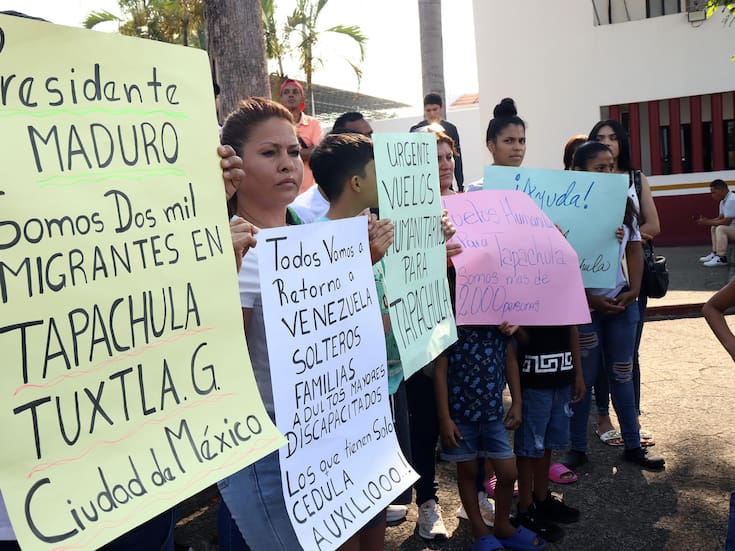 Presidente
MADURO
Somos Dos mil
MIGRANTES EN
TAPACHULA
TUXTLA. G.
Ciudad de México
Todos Vamos a
Retorno a
VENEZUELA
SOLTEROS
FAMILIAS
ADULTOS MAYORES
DISCAPACITADOS
Los que tienen Solo
CEDULA
AUXILIOOO!!
URGENTE
VUELOS
HUMANITARIOS
PARA
TAPACHULA
Vuelos Humani
Para Tapachula
Somos más de
2000 personas
¡Ayuda!